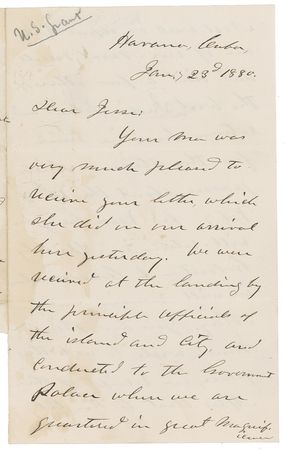 U. S. Grant
Havana, Cuba,
Jan.y 23d 1880.
Dear Jesse:
Your Ma was
very much pleased to
receive your letter which
she did on our arrival
here yesterday. We were
received at the landing by
the principle officials of
the island and City and
conducted to the Government
Palace where we are
quartered in great Magnif-
icence